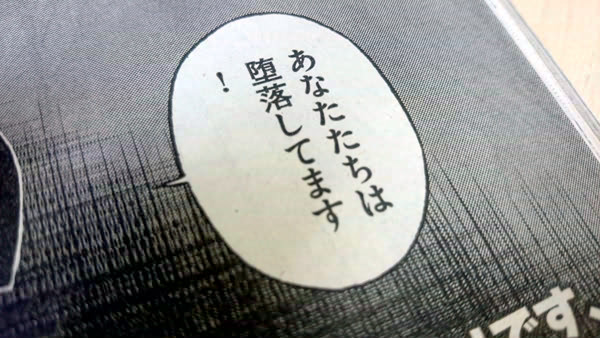 あなたたちは
堕落してます
！
です、